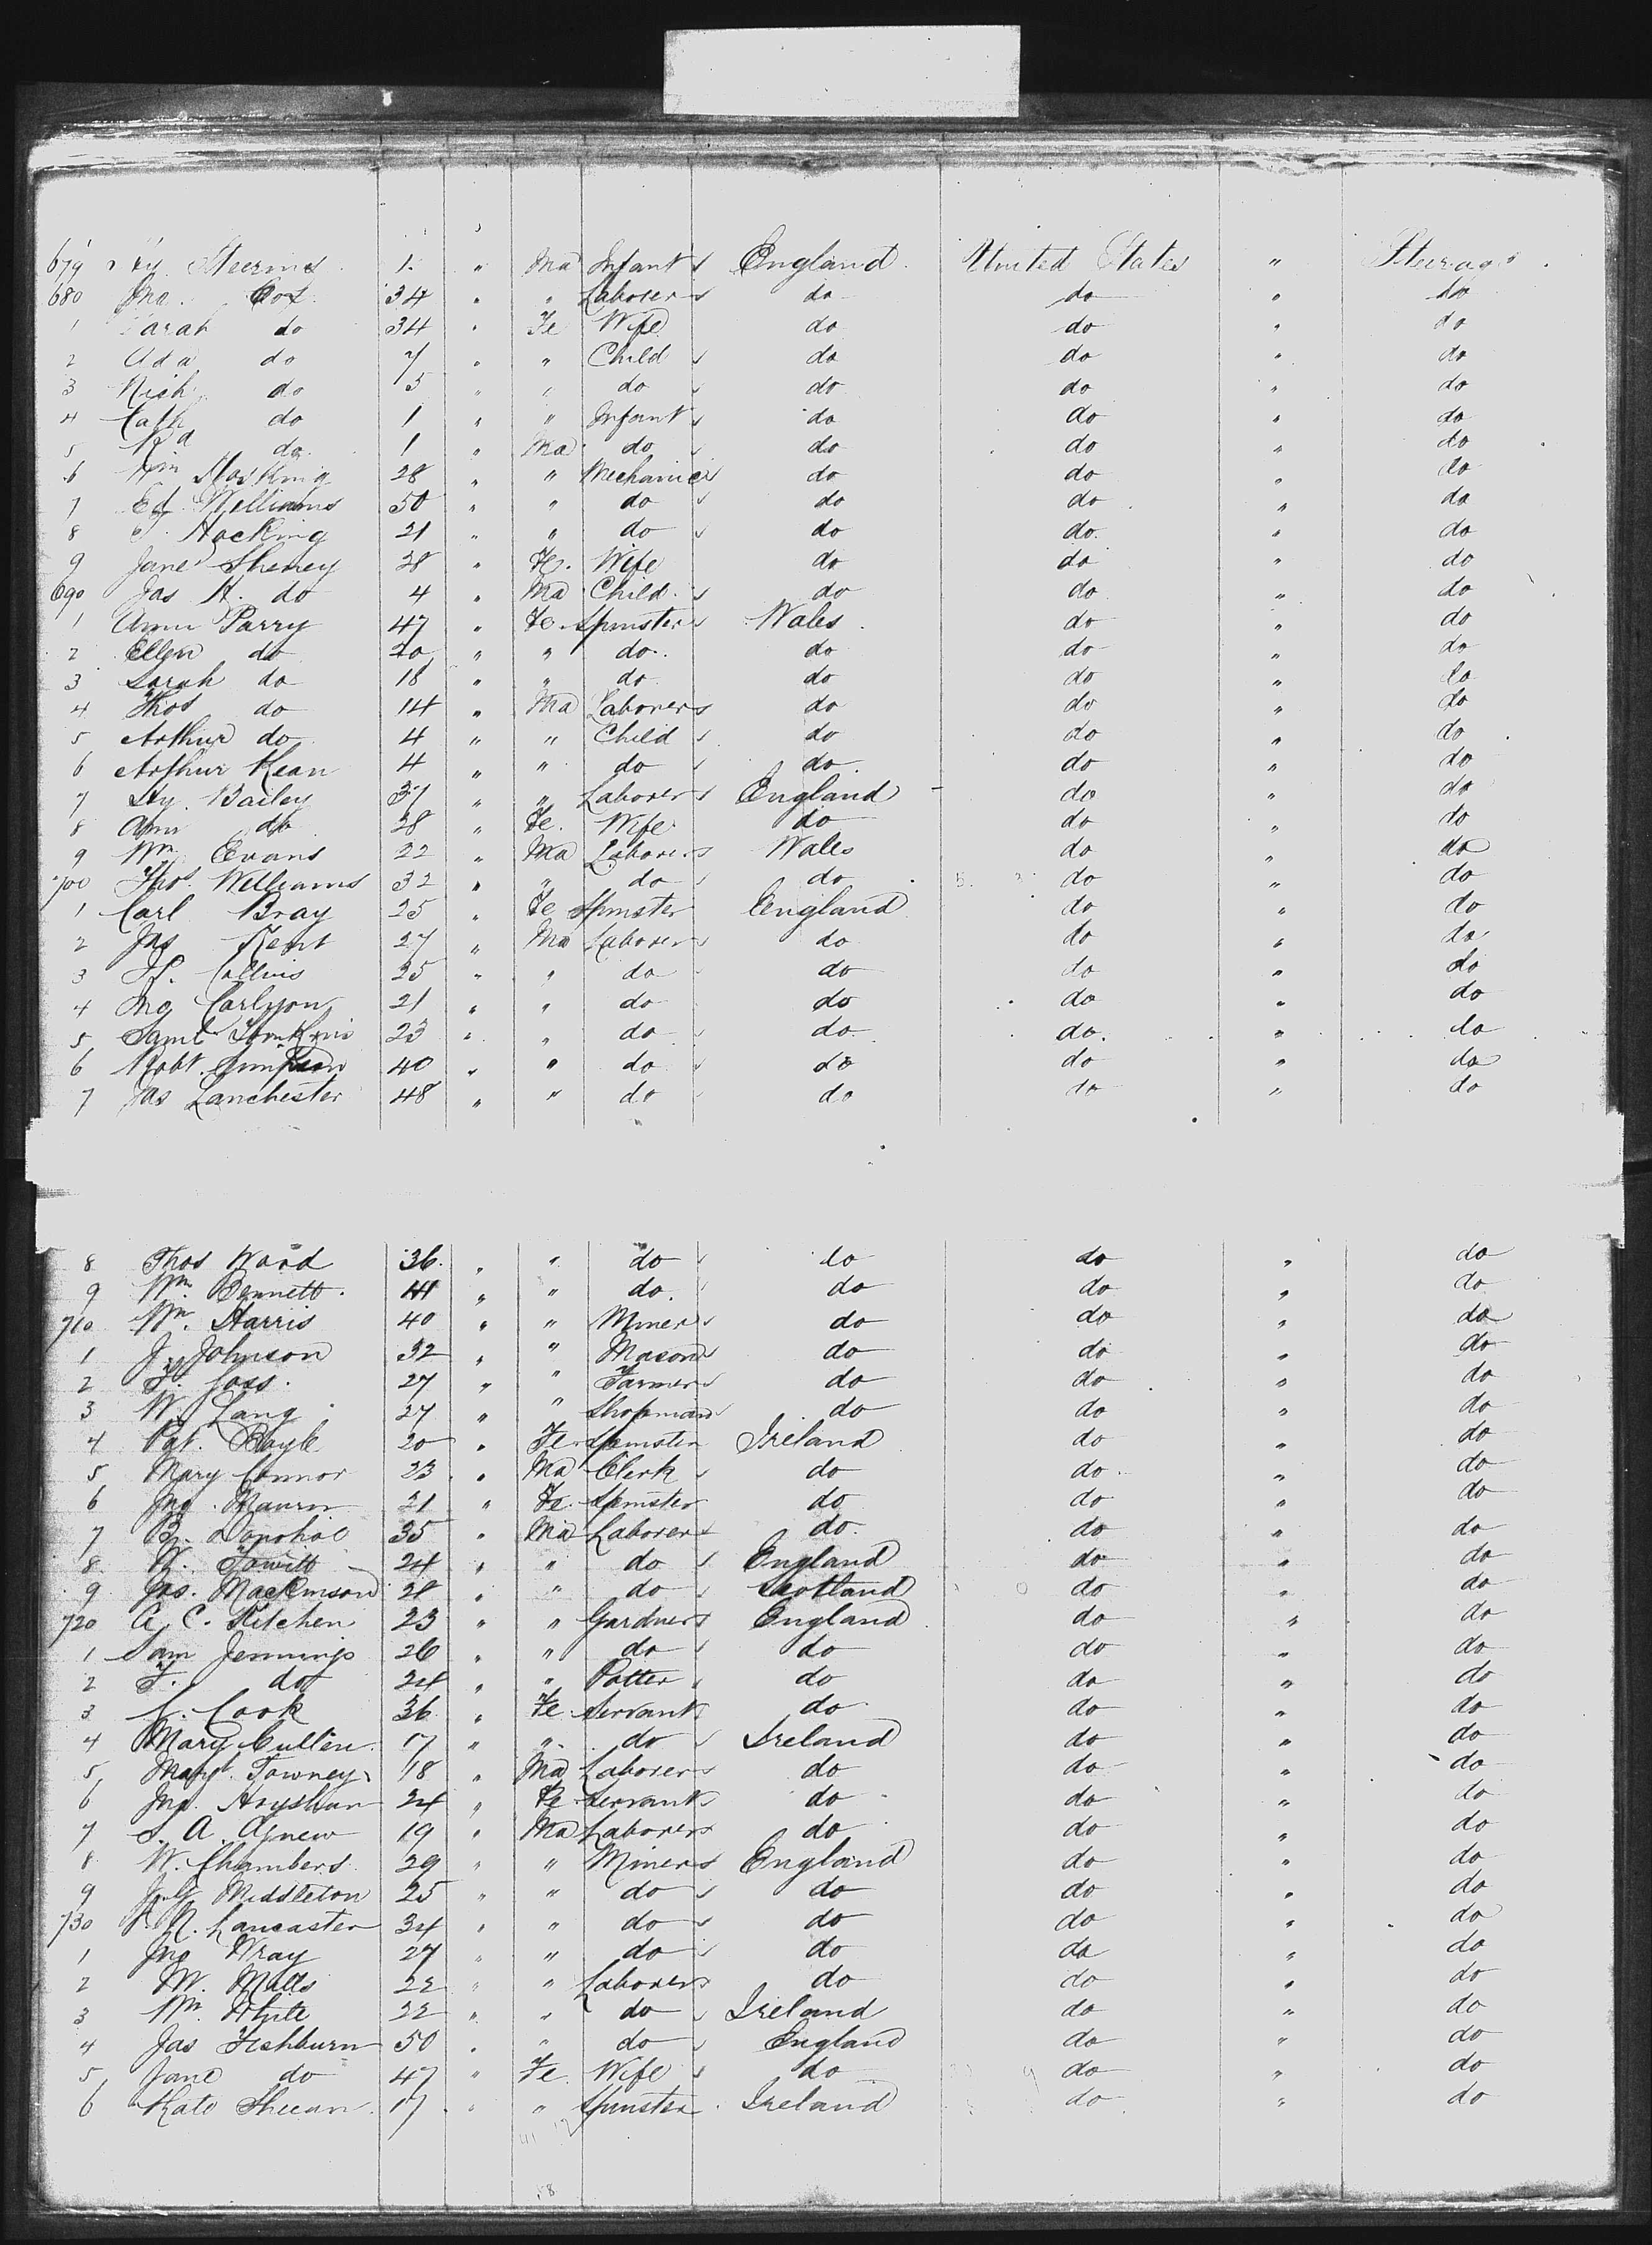 679 Hy Steerms 1 " Ma Infant England United States " Steerage
680 Jno. Cox 34 " " Laborer do do " do
1 Sarah do 34 " Fe Wife do do " do
2 Ada do 7 " " Child do do " do
3 Rich. do 5 " " do do do " do
4 Cath do 1 " " Infant do do " do
5 Rd do 1 " Ma do do do " do
6 Wm Hosking 28 " " Mechanic do do " do
7 Ed Williams 50 " " do do do " do
8 Hocking 21 " " do do do " do
9 Jane Sheney 28 " Fe. Wife do do " do
690 Jas H. do 4 " Ma Child do do " do
1 Ann Parry 47 " Fe Spinster Wales do " do
2 Ellen do 20 " " do do do " do
3 Sarah do 18 " " do do do " do
4 Thos do 14 " Ma Laborer do do " do
5 Arthur do 4 " " Child do do " do
6 Arthur Kean 4 " " do do do " do
7 Hy. Bailey 31 " " Laborer England do " do
8 Ann do 28 " Fe. Wife do do " do
9 Wm Evans 22 " Ma Laborer Wales do " do
700 Thos. Williams 32 " " do do do " do
1 Carl Bray 25 " Fe Spinster England do " do
2 Jas Kent 27 " Ma Laborer do do " do
3 Collins 25 " " do do do " do
4 Jno Carlyon 21 " " do do do " do
5 Saml Tomkins 23 " " do do do " do
6 Robt. Simpson 40 " " do do do " do
7 Jas Lanchester 48 " " do do do " do
8 Thos Ward 36 " " do do do " do
9 Wm. Bennett 41 " " do do do " do
710 Wm. Harris 40 " " Miner do do " do
1 J. Johnson 32 " " Mason do do " do
2 F. Joss. 27 " " Farmer do do " do
3 W. Lang 27 " " Shopman do do " do
4 Pat. Boyle 20 " Fe Spinster Ireland do " do
5 Mary Connor 23 " Ma Clerk do do " do
6 Jno. 21 " Fe. Spinster do do " do
7 B. Donohoe 35 " Ma Laborer do do " do
8 W. 24 " " do England do " do
9 Jas. Mackinson 21 " " do Scotland do " do
720 A. C. Kitchen 23 " " Gardner England do " do
1 Sam Jennings 26 " " do do do " do
2 F. do 24 " " Potter do do " do
3 Cook 36 " Fe Servant do do " do
4 Mary Cullen 17 " " do Ireland do " do
5 Margt. Towney 18 " Ma Laborer do do " do
6 Jno. 24 " Fe Servant do do " do
7 S. A. Agnew 19 " Ma Laborer do do " do
8 W. Chambers 29 " " Miner England do " do
9 J. G. Middleton 25 " " do do do " do
730 R. Lancaster 34 " " do do do " do
1 Jno Wray 27 " " do do do " do
2 W. Mills 22 " " Laborer do do " do
3 Wm. White 22 " " do Ireland do " do
4 Jas Fishburn 50 " " do England do " do
5 Jane do 47 " Fe. Wife do do " do
6 Kate Sheean 17 " " Spinster Ireland do " do